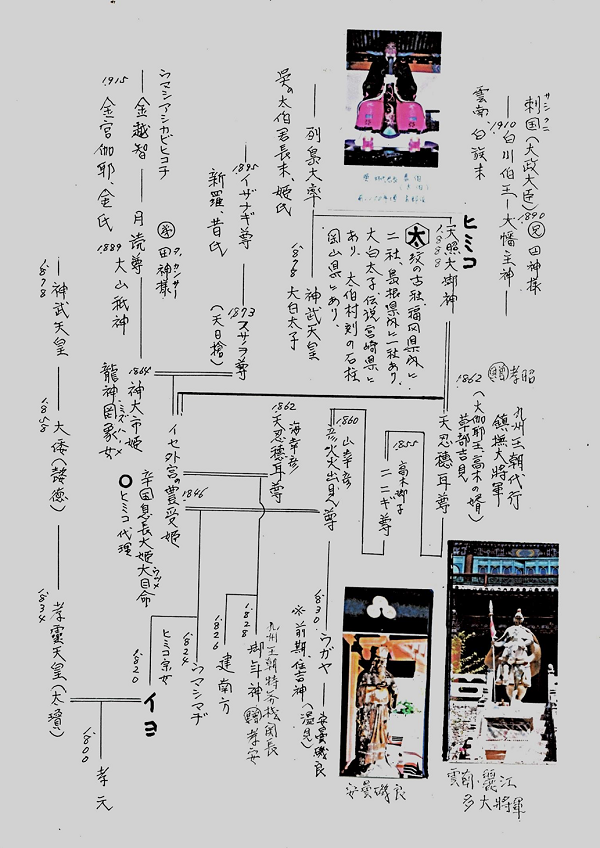 刺国(大政大臣)
サシクニ
1910
白川伯王
大幡主神
1890
兄
田神様
雲南白族末
ヒミコ
天照大御神
1888
太 紋の古社、福岡県内に
二社、島根県内に一社あり、
大白太子伝説宮崎県に
あり、太伯村刻の石柱
岡山県にあり。
列島大率
呉の太伯君長末、姫氏
神武天皇
1876
大白太子
1895
イザナギ尊
新羅、昔氏
1873
スサノヲ尊
(天日槍)
ウマシアシカビヒコヂ
金越智
1915
金官伽耶、金氏
月読尊
田神様
1889
大山祇神
1864
神大市姫
ミズハノメ
龍神罔象女
1878
神武天皇
1858
大倭(懿徳)
1834
孝霊天皇(太瓊)
1800
孝元
九州王朝代行
鎮撫大将軍
贈
孝昭
1862
(大伽耶王高木の婿)
草部吉見
天忍穂耳尊
1855
高木御子
ニニギ尊
1860
山幸彦
彦火火出見尊
海幸彦
1862
天忍穂耳尊
イセ外宮の豊受姫
1846
辛国息長大姫大目命
ウヅメ
ヒミコ代理
1830
ウガヤ
安曇磯良
※前期、住吉神
九州王朝特務機関長
1828
御年神
贈
孝安
1826
建南方
1824
ウマシマヂ
ヒミコ宗女
1820
イヨ
安曇磯良
雲南・麗江
多大将軍